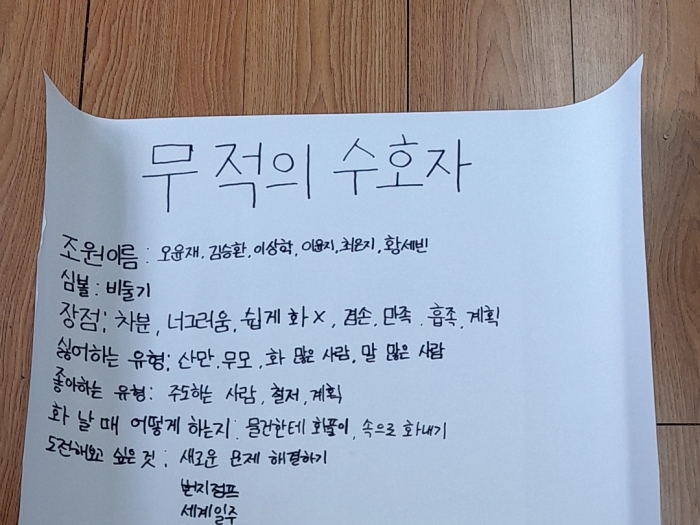 무적의 수호자
조원이름 : 오윤재, 김승환, 이상학, 이윤지, 최은지, 황세빈
심볼 : 비둘기
장점 ; 차분, 너그러움, 쉽게 화 X, 겸손, 만족, 흡족, 계획
싫어하는 유형 ; 산만, 무모, 화 많은 사람, 말 많은 사람
좋아하는 유형 : 주도하는 사람, 철저, 계획
화 날 때 어떻게 하는지 : 물건한테 화풀이, 속으로 화내기
도전해보고 싶은 것 ; 새로운 문제 해결하기
번지점프
세계일주